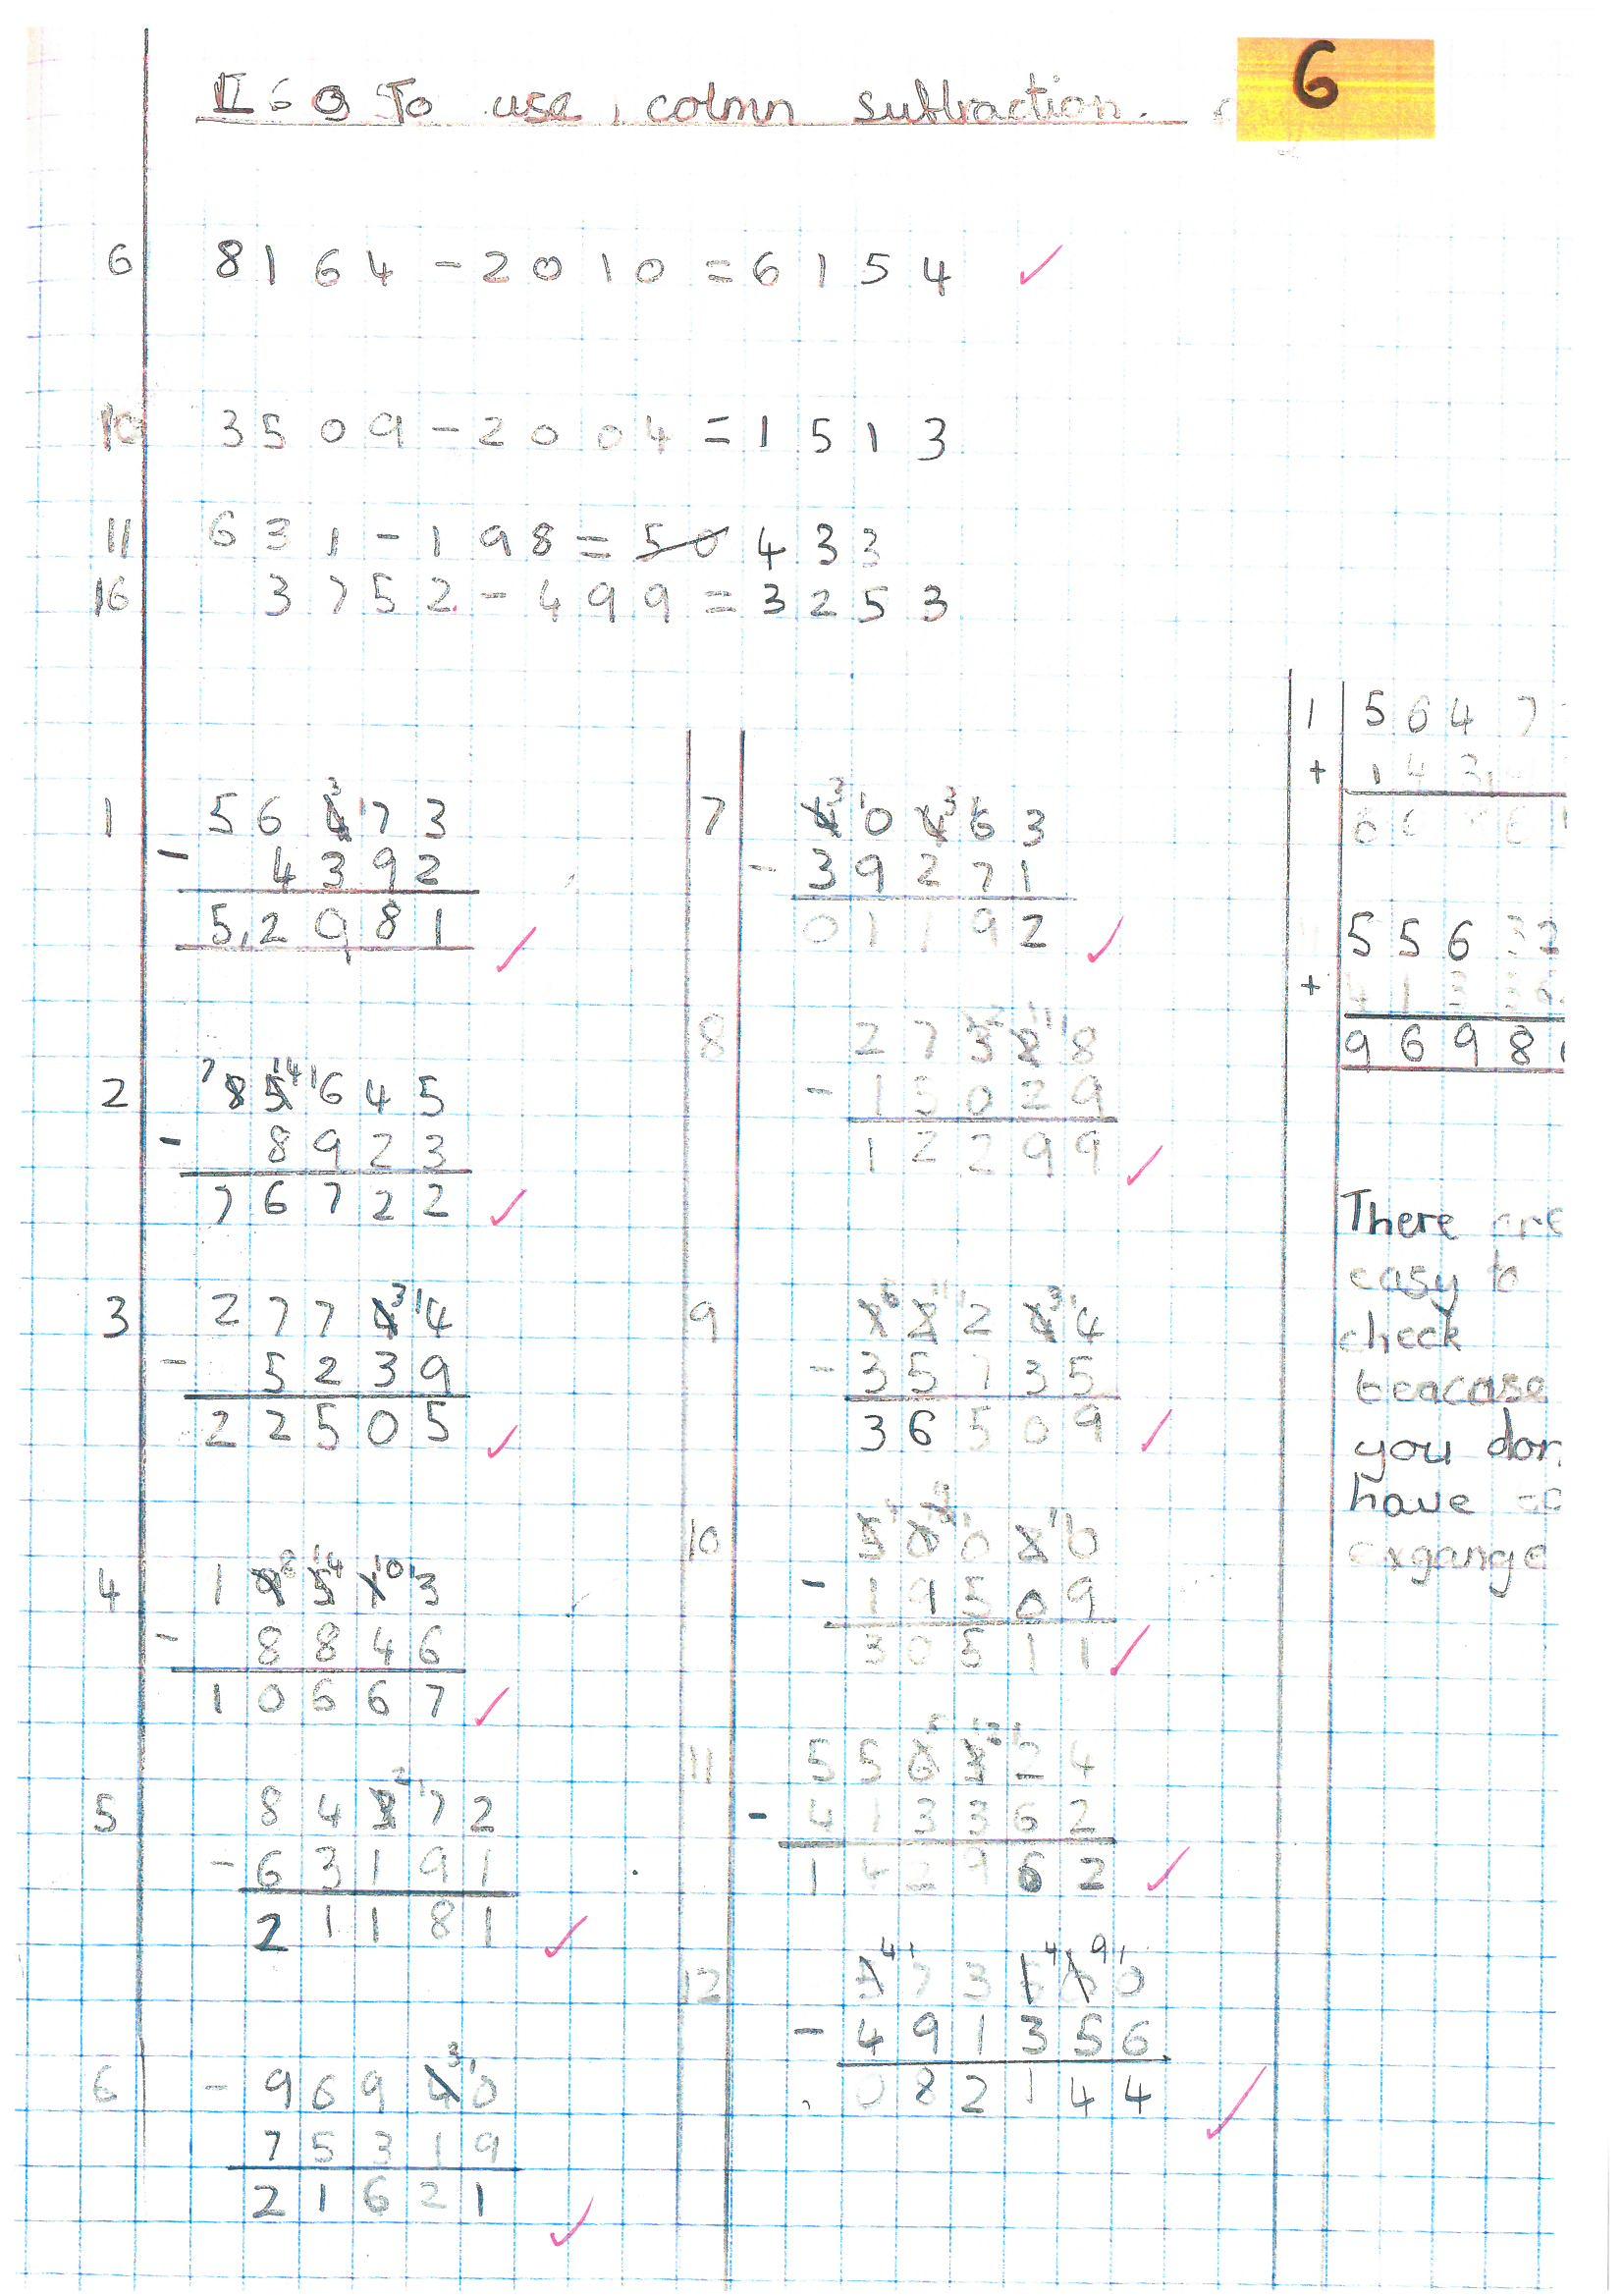 To use column subtraction.
6
6 8164 - 2010 = 6154
10 3509 - 2004 = 1513
11 631 - 198 = 50 433
16 3752 - 499 = 3253
1 56473
- 4392
52081
2 85645
- 8923
76722
3 27744
- 5239
22505
4 19513
- 8846
10667
5 84372
- 63191
21181
6 - 96940
75319
21621
7 40463
- 39271
01192
8 27328
- 15029
12299
9 72244
- 35735
36509
10 50020
- 19509
30511
11 556324
- 413362
142962
12 573500
- 491356
082144
1 5647
+ 143
55632
+ 413
9698
There are
easy to
check
beacase
you don
have
exgange